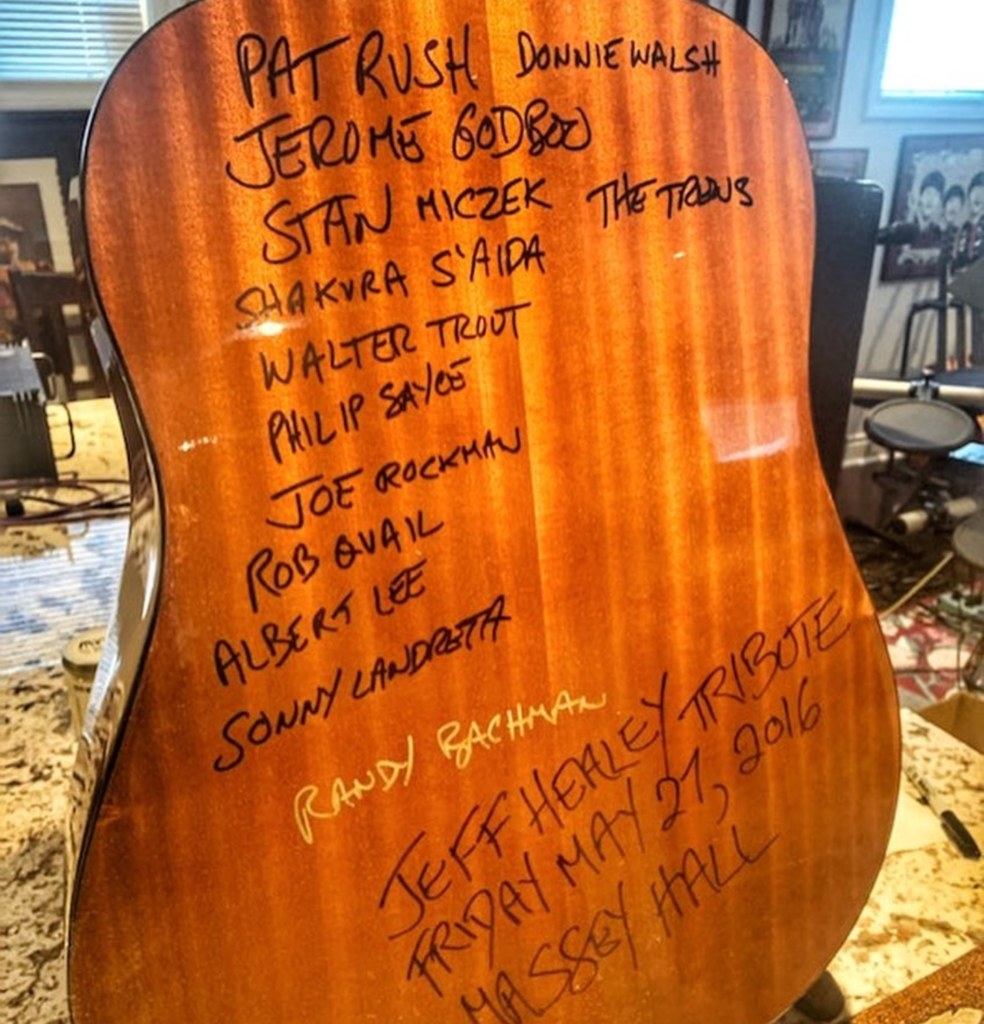 PAT RUSH DONNIE WALSH
JEROME GODBOO
STAN MICZEK THE TREWS
SHAKURA S'AIDA
WALTER TROUT
PHILIP SAYCE
JOE ROCKMAN
ROB QUAIL
ALBERT LEE
SONNY LANDRETH
RANDY BACHMAN
JEFF HEALEY TRIBUTE
FRIDAY MAY 27, 2016
MASSEY HALL